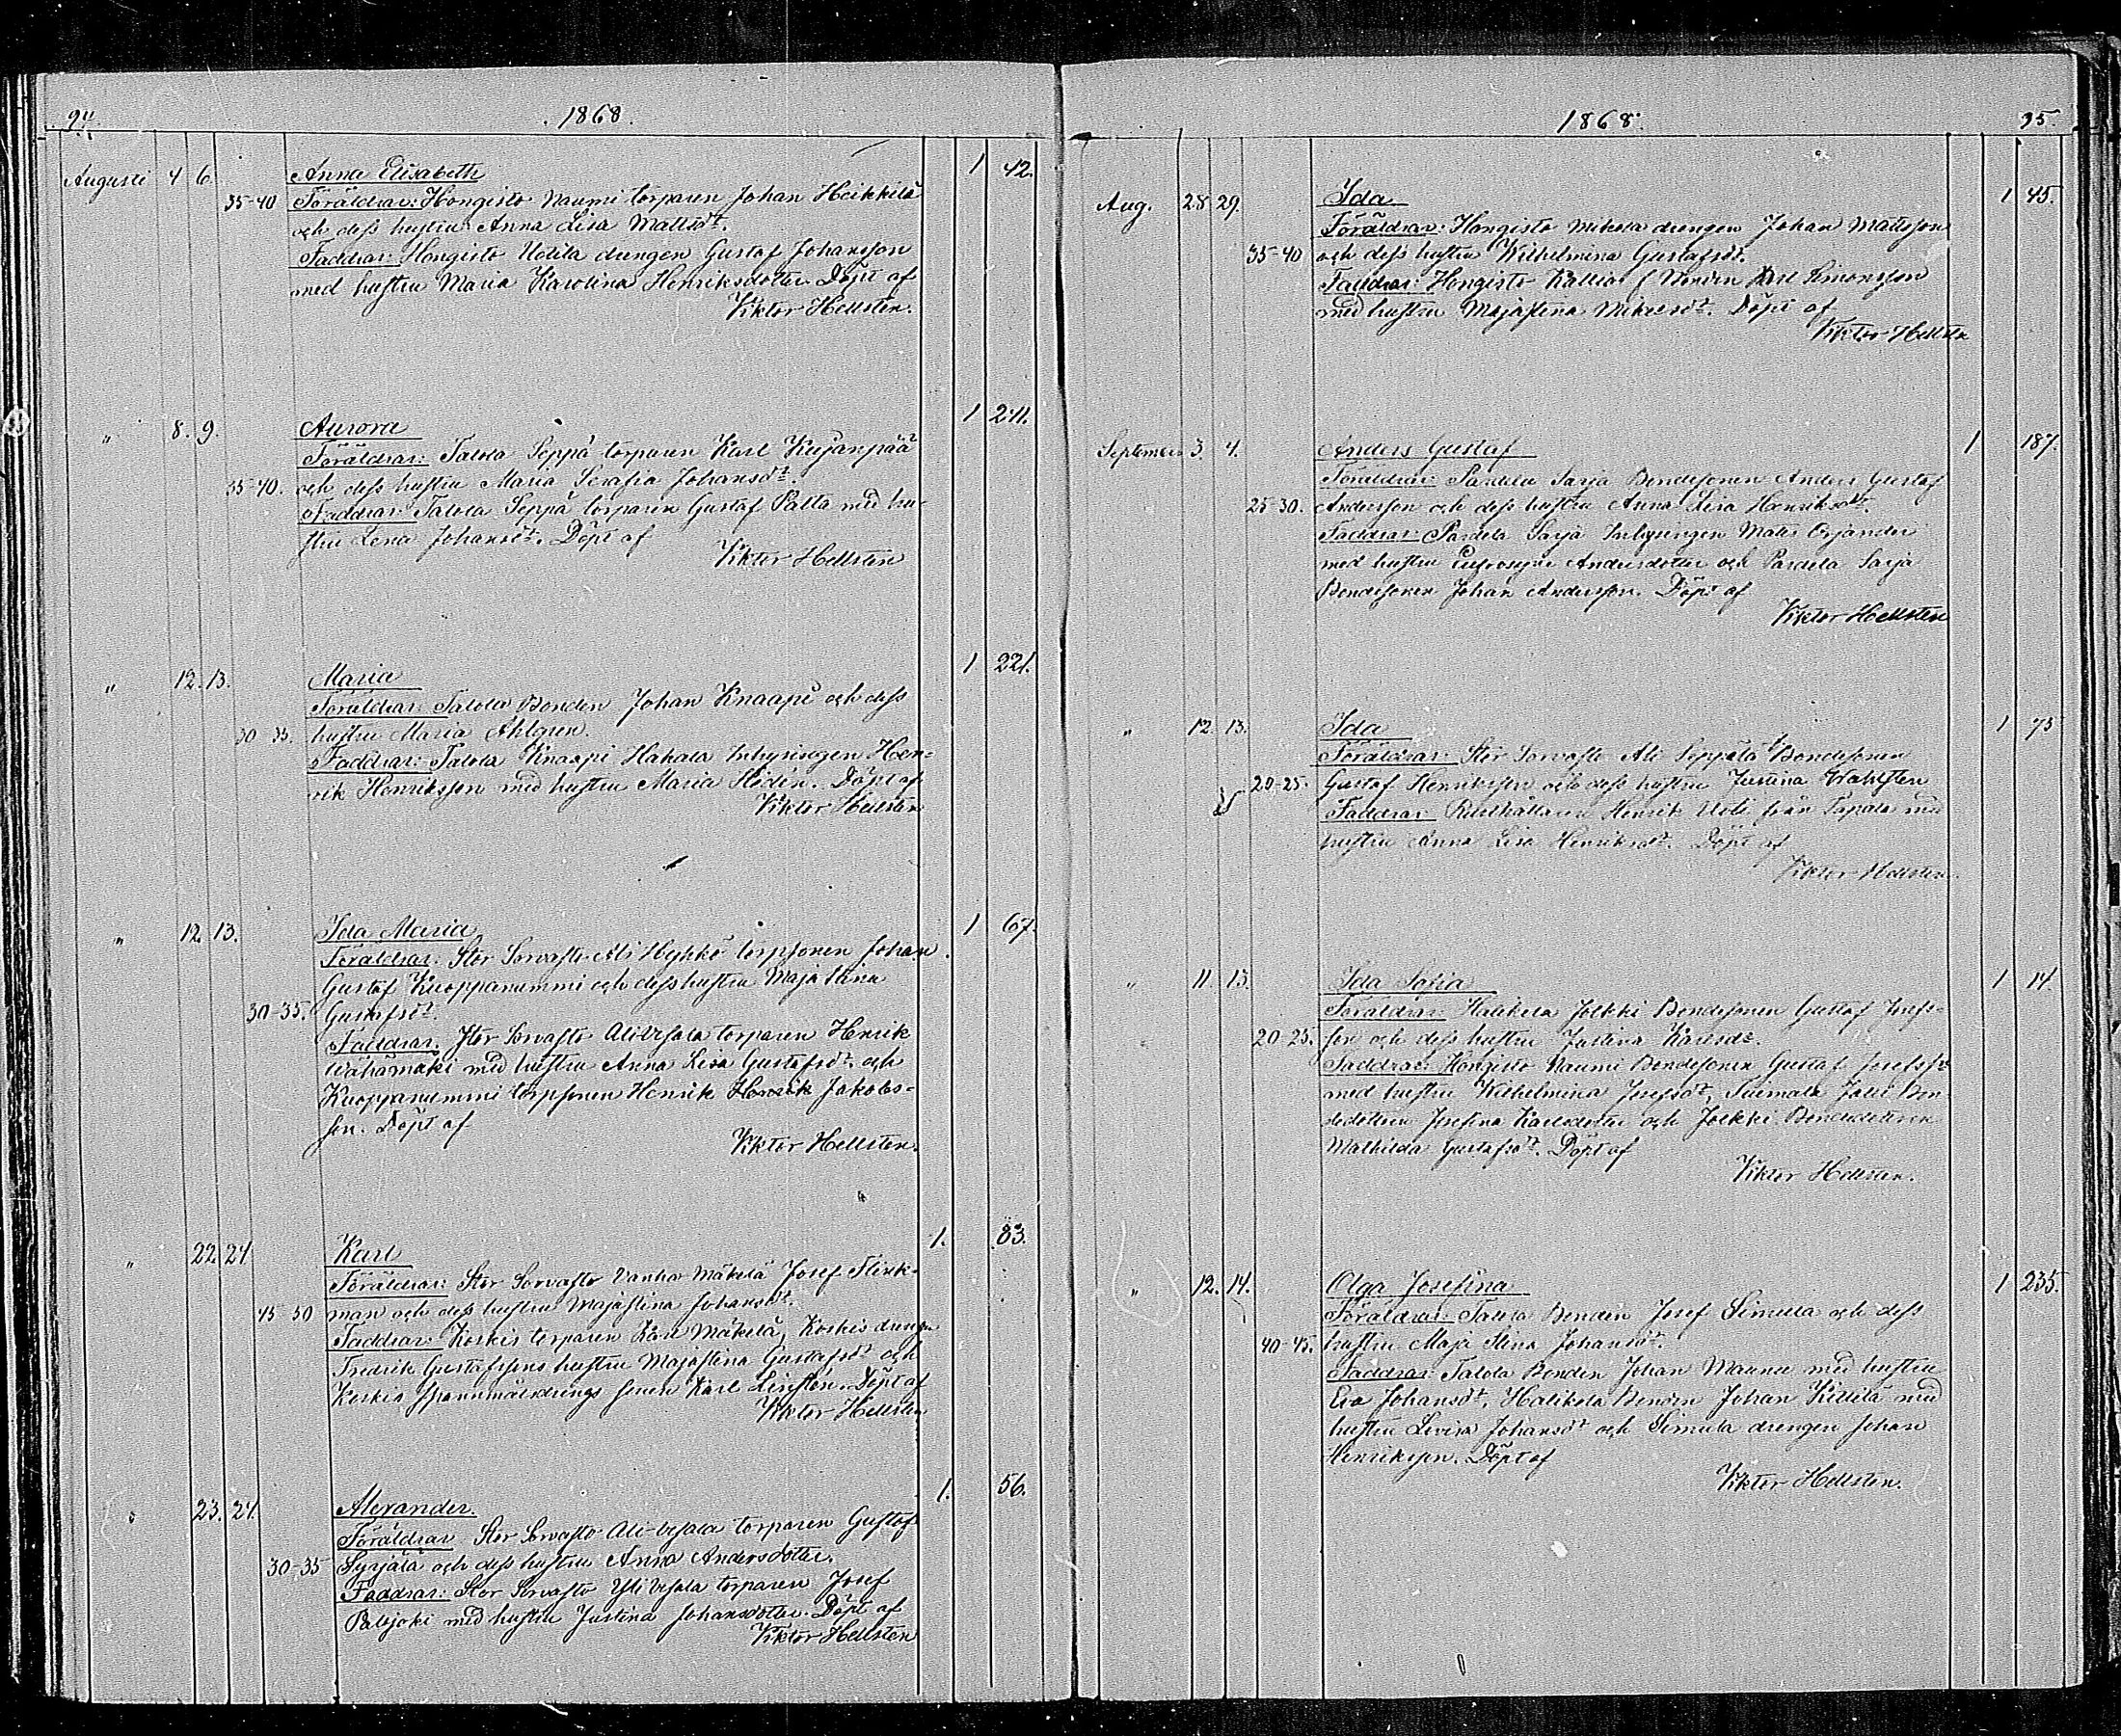 94. 1868.
Augusti 4 6. Anna Elisabeth 1 42.
35-40 Föräldrar: Hongisto Naumi torparen Johan Heikkilä
och dess hustru Anna Lisa Mattsdr.
Faddrar: Hongisto Uotila drengen Gustaf Johansson
med hustru Maria Karolina Henriksdotter. Döpt af
Viktor Hellsten.
" 8. 9. Aurora 1 211.
Föräldrar: Talola Seppä torparen Karl Kujanpää
35-40. och dess hustru Maria Serafia Johansdr.
Faddrar: Talola Seppä torparen Gustaf Palta med hu-
stru Lena Johansdr. Döpt af
Viktor Hellsten
" 12. 13. Maria 1 221.
Föräldrar: Talola Bonden Johan Knaapi och dess
30-35. hustru Maria Ahlgren.
Faddrar: Talola Knaapi Hakala Inhysingen Hen-
rik Henriksson med hustru Maria Hedén. Döpt af
Viktor Hellsten
" 12. 13. Ida Maria 1 67.
Föräldrar: Stor Sorvasto Ali Hyykö torpsonen Johan
Gustaf Kuoppanummi och dess hustru Maja Stina
30-35. Gustafsdr.
Faddrar: Stor Sorvasto Ali-Vesala torparen Henrik
Wähämäki med hustru Anna Lisa Gustafsdr. och
Kuoppanummi torpsonen Henrik Henrik Jakobs-
son. Döpt af
Viktor Hellsten.
" 22. 24 Karl 1. 83.
Föräldrar: Stor Sorvasto Vanha Mäkelä Josef Flink-
45-50 man och dess hustru Majastina Johansdr.
Faddrar: Koskis torparen Karl Mäkelä, Koskis drengen
Fredrik Gustafssons hustru Majastina Gustafsdr och
Koskis Spannmålsdrengs sonen Karl Döpt af
Viktor Hellsten
23. 24. Alexander. 1. 56.
Föräldrar Stor Sorvasto Ali-Vesala torparen Gustaf
30-35 Syrjälä och dess hustru Anna Andersdotter.
Faddrar: Stor Sorvasto Yli Vesala torparen Josef
Palijoki med hustru Justina Johansdotter. Döpt af
Viktor Hellsten
1868. 95.
Aug. 28 29. Ida 1 45.
Föräldrar: Hongisto Mikola drengen Johan Mattsson
35-40 och dess hustru Wilhelmina Gustafsdr.
Faddrar: Hongisto Kallio Bonden Karl Simonsson
med hustru Majastina Mikelsdr. Döpt af
Viktor Hellsten
September 3. 4. Anders Gustaf 1 187.
Föräldrar: Pardela Sarja Bondesonen Anders Gustaf
25-30. Andersson och dess hustru Anna Lisa Henriksdr.
Faddrar: Pardela Sarja Inhysingen Mats Orjander
med hustru Eufrosyne Andersdotter och Pardela Sarja
Bondesonen Johan Andersson. Döpt af
Viktor Hellsten
" 12 13. Ida 1 75
Föräldrar: Stor Sorvasto Ali Seppälä Bondesonen
20-25. Gustaf Henriksson och dess hustru Justina Wahlsten
Faddrar: Rusthållaren Henrik Uoti från med
hustru Anna Lisa Henriksdr. Döpt af
Viktor Hellsten.
" 11. 13. Ida Sofia 1 14.
Föräldrar: Halikola Jolkki Bondesonen Gustaf Josefs-
20-25. son och dess hustru Justina Karlsdr.
Faddrar: Hongisto Naumi Bondesonen Gustaf Josefsson
med hustru Wilhelmina Josefsdr, Bon-
dedottren Josefina Karlsdotter och Jolkki Bondedottren
Mathilda Gustafsdr. Döpt af
Viktor Hellsten.
" 12. 14. Olga Josefina 1 235.
Föräldrar: Talola Bonden Josef Simula och dess
40-45. hustru Maja Stina Johansdr.
Faddrar: Talola Bonden Johan Maunu med hustru
Eva Johansdr, Halikola Bonden Johan Kittilä med
hustru Lovisa Johansdr och Simula drengen Johan
Henriksson. Döpt af
Viktor Hellsten.